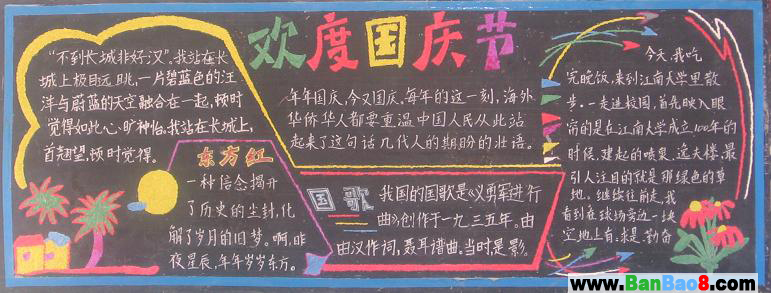 欢度国庆节
“不到长城非好汉”。我站在长
城上极目远眺,一片碧蓝色的汪
洋与蔚蓝的天空融合在一起,顿时
觉得如此心旷神怡。我站在长城上,
首翘望,顿时觉得。
年年国庆,今又国庆。每年的这一刻,海外
华侨华人都要重温中国人民从此站
起来了这句话几代人的期盼的壮语。
东方红
一种信念揭开
了历史的尘封,化
解了岁月的旧梦。啊,昨
夜星辰,年年岁岁东方。
国歌
我国的国歌是《义勇军进行
曲》创作于一九三五年。由
由汉作词,聂耳谱曲。当时是影。
今天,我吃
完晚饭,来到江南大学里散
步。一走进校园,首先映入眼
帘的是在江南大学成立100年的
时候,建起的喷泉、逸夫楼,最
引人注目的就是那绿色的草
地。继续往前走,我
看到在球场旁边一块
空地上有:求是、勤奋
www.BanBao8.com